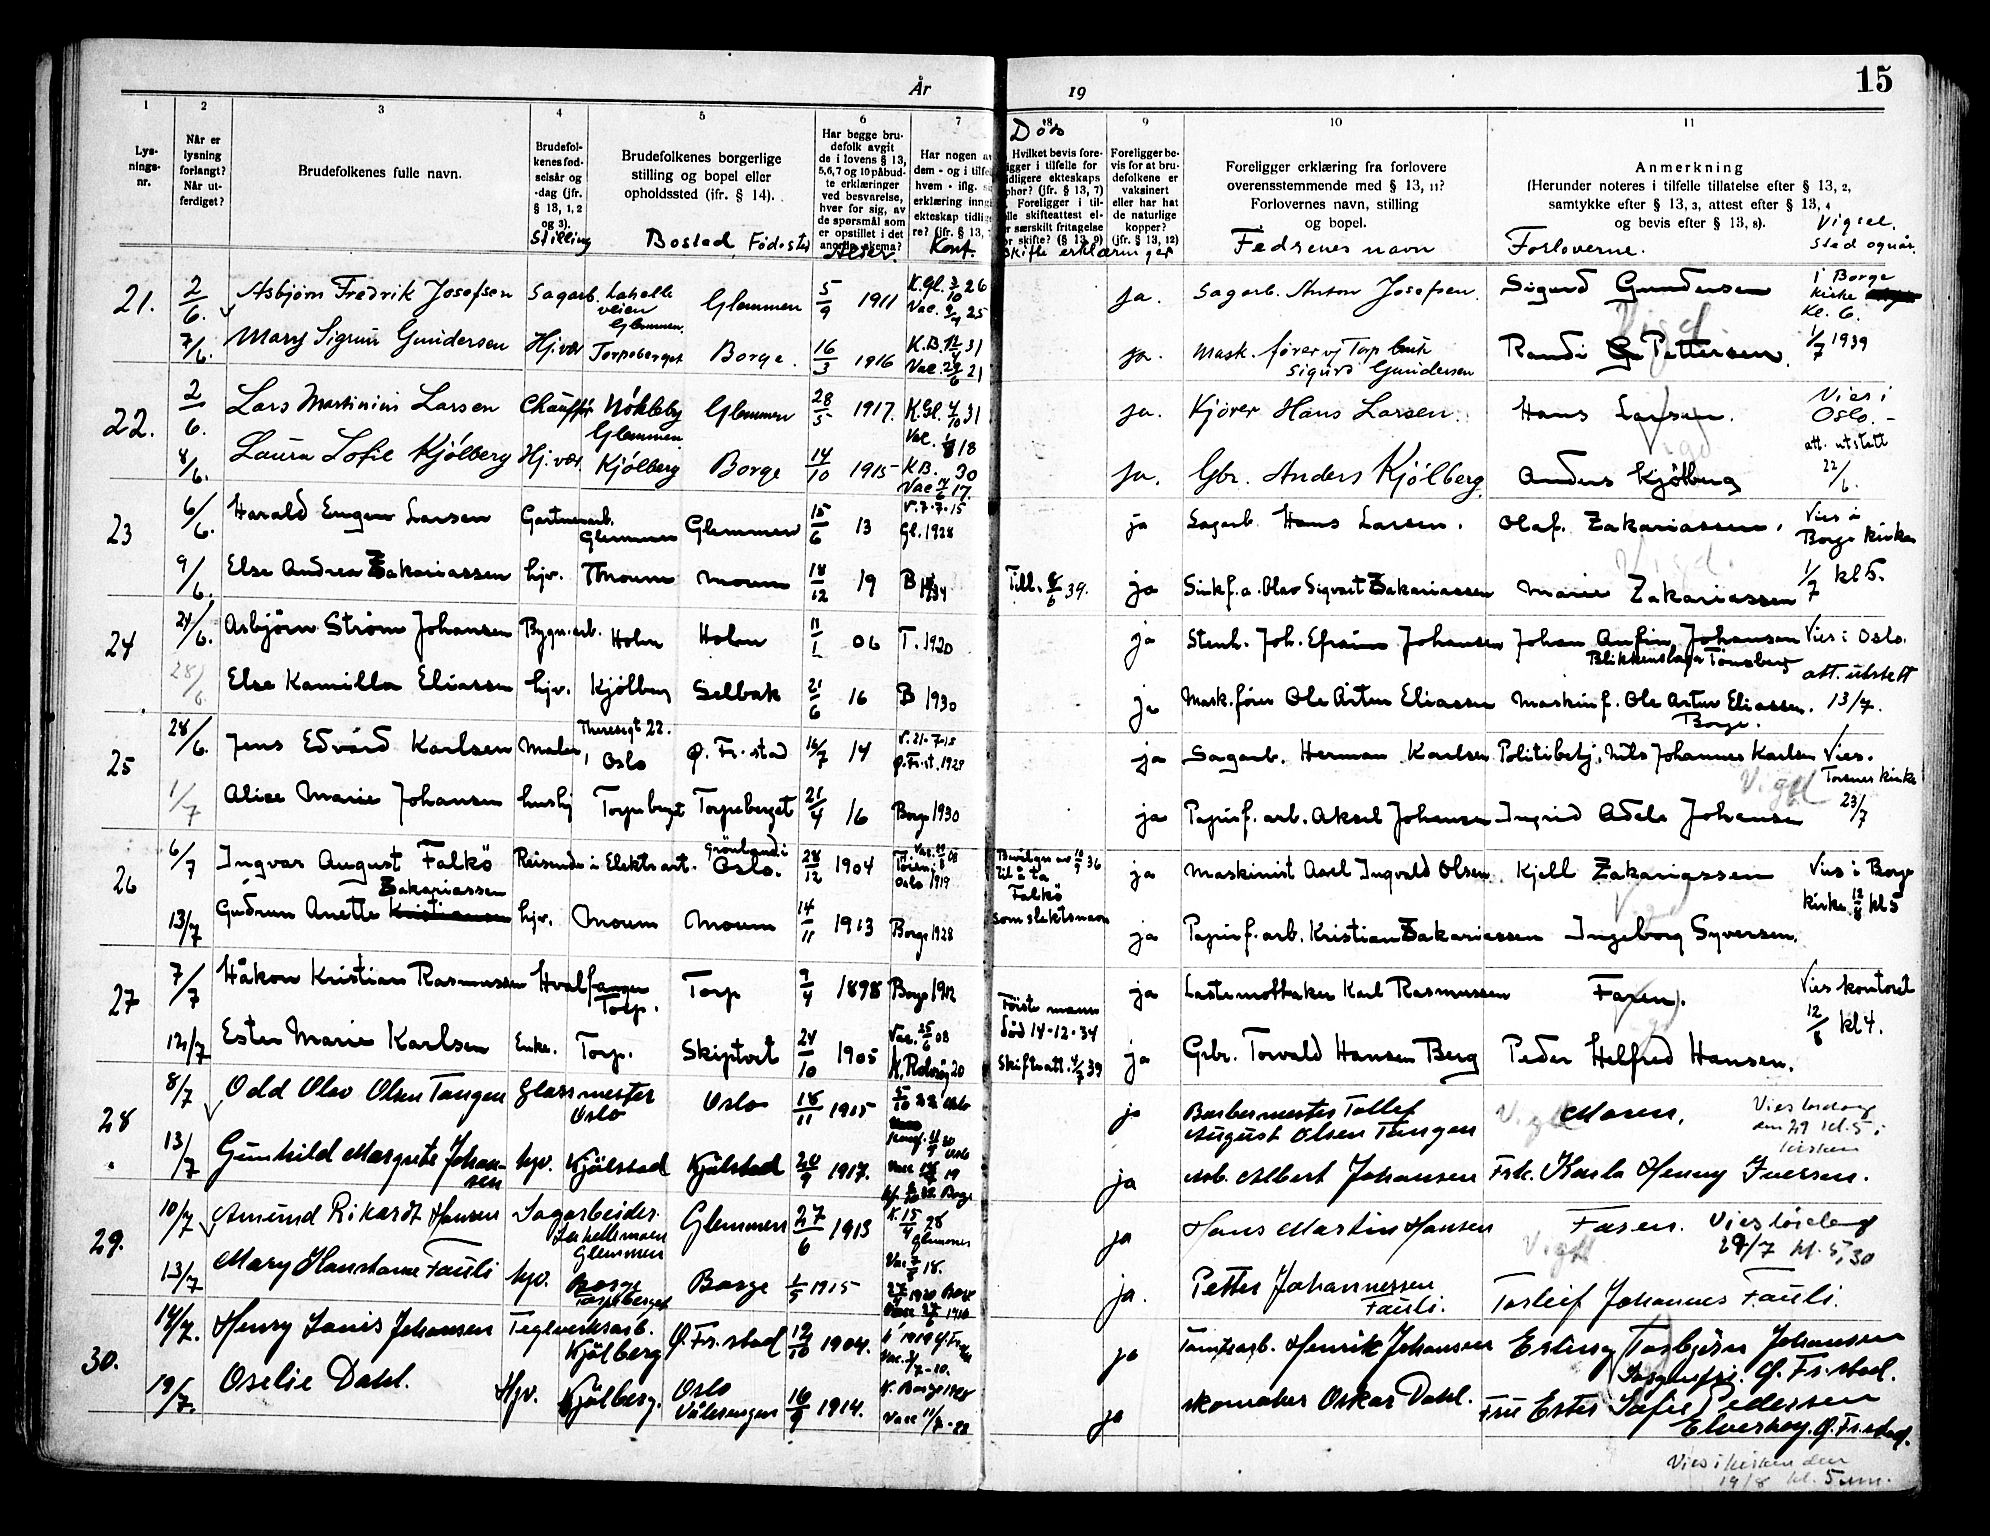 År 19
15
1 2 3 4 5 6 7 8 9 10 11
Lys-
nings-
nr.
Når er
lysning
forlangt?
Når ut-
ferdiget?
Brudefolkenes fulle navn.
Brudefol-
kenes fød-
selsår og
-dag (jfr.
§ 13, 1, 2
og 3).
Stilling
Brudefolkenes borgerlige
stilling og bopel eller
opholdssted (ifr. § 14).
Bosted, Fødested
Har begge bru-
defolk avgit
de i lovens § 13,
5, 6, 7 og 10 påbud-
te erklæringer
ved besvarelse,
hver for sig, av
de spørsmål som
er opstillet i det
skema?
Alder.
Har nogen
dem - og i tilfe
hvem - iflg.
erklæring inng
ekteskap tidlig
re? (jfr. § 13,
Konf.
Døb
Hvilket bevis fore-
ligger i tilfelle for
tidligere ekteskaps
ophør? (jfr. § 13, 7)
Foreligger i til-
elle skifteattest el-
er særskilt fritagelse
or skifte? (§ 13, 9)
Skifte erklæringer
Foreligger be-
vis for at bru-
defolkene er
vaksinert
eller har hat
de naturlige
kopper?
(jfr. § 13, 12)
Foreligger erklæring fra forlovere
overensstemmende med § 13, 11?
Forlovernes navn, stilling
og bopel.
Fedrenes navn
Anmerkning
(Herunder noteres i tilfelle tillatelse efter § 13, 2,
samtykke efter § 13, 3, attest efter § 13, 4
og bevis efter § 13, 8).
Forloverne.
Vigsel.
Sted og når.
21. 2/6. Asbjørn Fredrik Josefsen Sagarb. Lahelle veien Glemmen. Glemmen 5/9 1911 K.Gl. 3/10 26 Vac. 25 ja. Sagarb. Anton Josefsen. Sigurd Gundersen i Borge kirke Kl. 6.
7/6. Mary Sigrun Gundersen Hj.vær Torpeberget Borge. 16/3 1916 K.B. 31 Vac. 21 ja. Mask. fører v/ Torp bruk Sigurd Gundersen Randi Pettersen. Vigd. 1/7 1939
22. 2/6. Lars Martinius Larsen Chauffør Nökleby Glemmen Glemmen 28/5 1917. K.Gl. 4/10 31 Vac. 18 ja. Kjører Hans Larsen. Hans Larsen. Vies i Oslo. -
8/6. Laura Sofie Kjölberg Hj.vær Kjölberg Borge 14/10 1915 K.B. 30 Vac 17. ja. Gbr. Anders Kjölberg. Anders Kjölberg att. utstett 22/6.
23 6/6. Harald Eugen Larsen Gartnerarb. Glemmen Glemmen 15/6 13 V. 7-7-15 Gl. 1928 ja Sagarb. Hans Larsen. Olaf. Zakariassen. Vies i Borge kirke
9/6. Else Andrea Zakariassen hjv. Moum Moum 18/12 19 B 1934 Till. 8/6 39. ja Olav Sigvart Zakariassen Marie Zakariassen Vigd. 1/7 kl 5.
24 24/6. Asbjørn Strøm Johansen Bygn.arb. Holm Holm 11/1 06 T. 1920 ja Stenh. Joh. Efraim Johansen Johan Anfin Johansen Blikkenslager Tønsberg Vies i Oslo.
28/6 Else Kamilla Eliassen hjv. Kjölberg Selbak 21/6 16 B 1930 ja Mask.fører Ole Artur Eliassen Maskinf. Ole Artur Eliassen. Borge. att. utstett 13/7.
25 28/6. Jens Edvard Karlsen Maler, Theresegt 22. Oslo Ø. Fr.stad 16/7 14 V. 21-7-15 Ø.Fr.st. 1929 ja Sagarb. Herman Karlsen Politibetj. Nils Johannes Karlsen Vies. Torsnes kirke
1/7 Alice Marie Johansen hushj Torpebergt Torpeberget 21/4 16 Borge 1930 ja Papirf. arb. Aksel Johansen Ingrid Adele Johansen Vigd 23/7
26 6/7 Ingvar August Falkö Reisende i Elektr art. Grönland i Oslo. 28/12 1904 Oslo 1919 Bevilgn av 36 til å ta Falkö som slektsnavn ja Maskinist Axel Ingvald Olsen. Kjell Zakariassen Vies i Borge
13/7 Gudrun Anette Zakariassen hjv. Moum Moum 14/11 1913 Borge 1928 ja Papirf. arb. Kristian Zakariassen Ingeborg Syversen. kirke. 12/8 kl 5
27 7/7 Håkon Kristian Rasmussen Hvalfanger Torp. Torp 9/4 1898 Borge 1912 ja Lastemottaker Karl Rasmussen Faren. Vies kontoret
12/7 Ester Marie Karlsen Enke. Torp. Skiptvet 24/10 1905 Vac. 25/6 08 K. Rolvsøy 20 Første mann död 14-12-34 Skifteatt. 4/7 39 ja Gbr. Torvald Hansen Berg Peder Helfred Hansen. 12/8 kl 4.
28 8/7 Odd Olav Olsen Tangen Glassmester Oslo Oslo 18/11 1915 ja Barbermester Tollef August Olsen Tangen Vigd Moren. Vies lördag den 29 kl. 5 i kirken
13/7 Gunhild Margrete Johansen hjv. Kjölstad Kjölstad 1917. ja Arb. Albert Johansen Frk. Karla Henny Iversen.
29. 10/7 Amund Rikardt Hansen Sagarbeider. Glemmen Glemmen 27/6 1913 K. 15/4 28 Glemmen ja Hans Martin Hansen Faren. Vies lördag 29/7 kl. 5,30
13/7 Mary Konstanse Fauli hjv. Borge Torpeberget Borge 1/5 1915 ja. Petter Johannessen Fauli. Vigd Torleif Johannes Fauli.
30. 14/7. Henry Lauis Johansen Teglverksarb. Kjölberg Ø.Fr.stad 12/10 1904. ja Tomtearb. Henrik Johansen Erling Torbjørn Johansen Ø. Fr.stad.
19/7. Oselie Dahl. Hjv. Kjölberg. Oslo Vålerengen 16/9 1914. K. Borge Vacc 11/7 - 22 ja skomaker Oskar Dahl. Fru Ester Sofie Pedersen Elverhøy. Ø.Fr.stad.
Vies i kirken den
19/8 kl. 5 em.